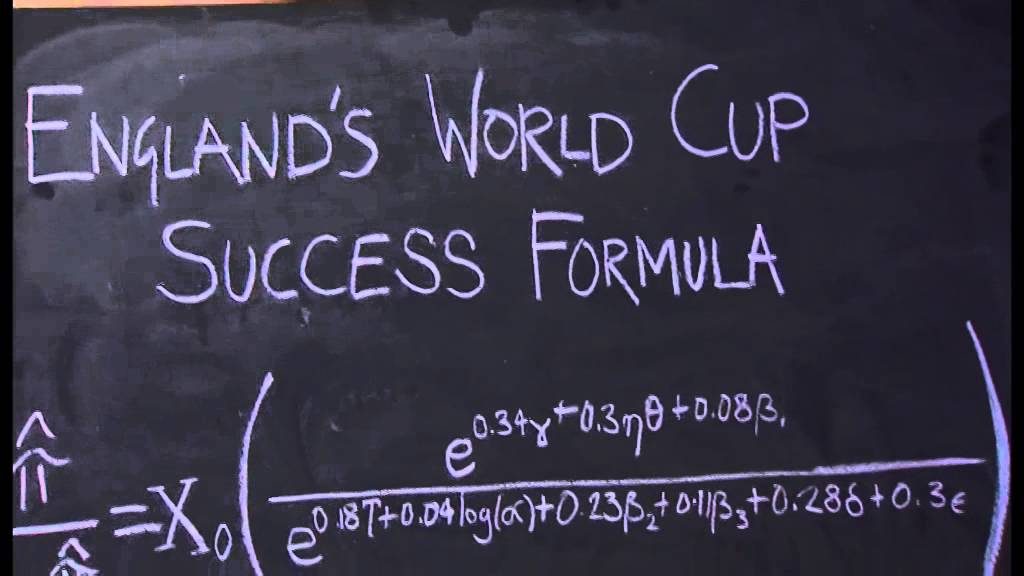 ENGLAND'S WORLD CUP
SUCCESS FORMULA
π̂ / π̂ = X₀ ( e^(0.34γ+0.3ηθ+0.08β₁) / e^(0.18T+0.04log(α)+0.23β₂+0.11β₃+0.28δ+0.3ϵ) )